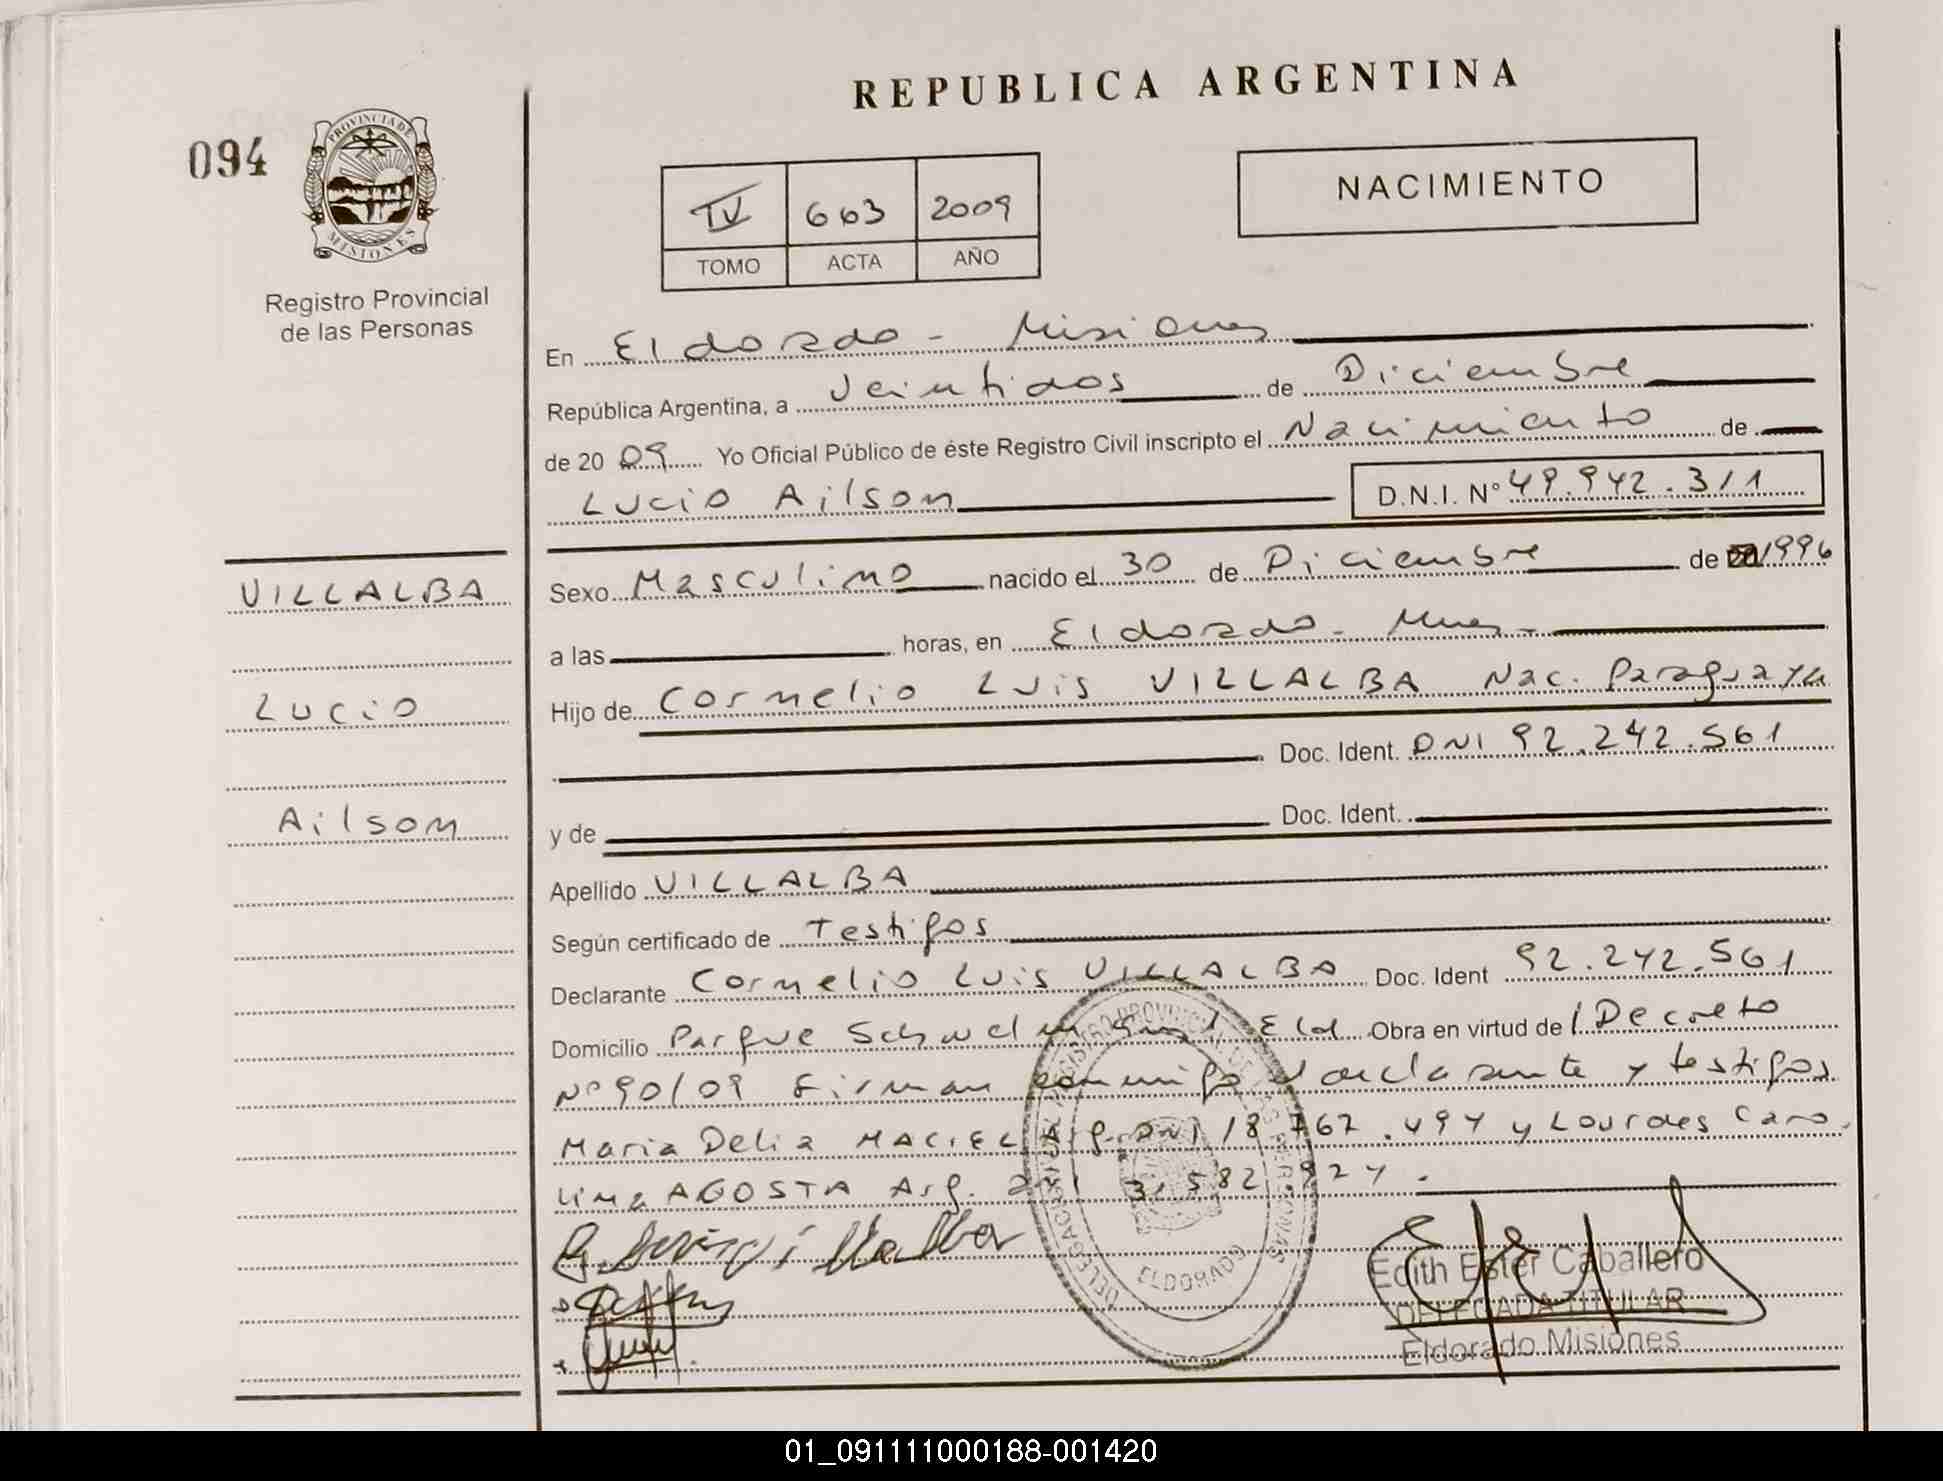 REPUBLICA ARGENTINA
094
PROVINCIA DE
MISIONES
Registro Provincial
de las Personas
NACIMIENTO
IV 663 2009
TOMO ACTA AÑO
En Eldorado - Misiones
República Argentina, a Veintidos de Diciembre
de 20 09 Yo Oficial Público de éste Registro Civil inscripto el Nacimiento de
Lucio Ailson D.N.I. Nº 49.942.311
Sexo Masculino nacido el 30 de Diciembre de 1996
a las horas, en Eldorado - Mnes -
Hijo de Cornelio Luis VILLALBA Nac. Paraguaya
Doc. Ident. DNI 92.242.561
y de Doc. Ident.
Apellido VILLALBA
Según certificado de Testigos
Declarante Cornelio Luis VILLALBA Doc. Ident 92.242.561
Domicilio Parque Schwelm Eld Obra en virtud de Decreto
Nº 90/09 Firman conmigo declarante y testigos
Maria Delia MACIEL Arg. DNI 18 767.494 y Lourdes Caro.
lina AGOSTA Arg. DNI 31 582.924.
VILLALBA
Lucio
Ailson
DELEGACION REGISTRO PROVINCIAL DE LAS PERSONAS
ELDORADO
Edith Ester Caballero
DELEGADA TITULAR
Eldorado Misiones
01_091111000188-001420